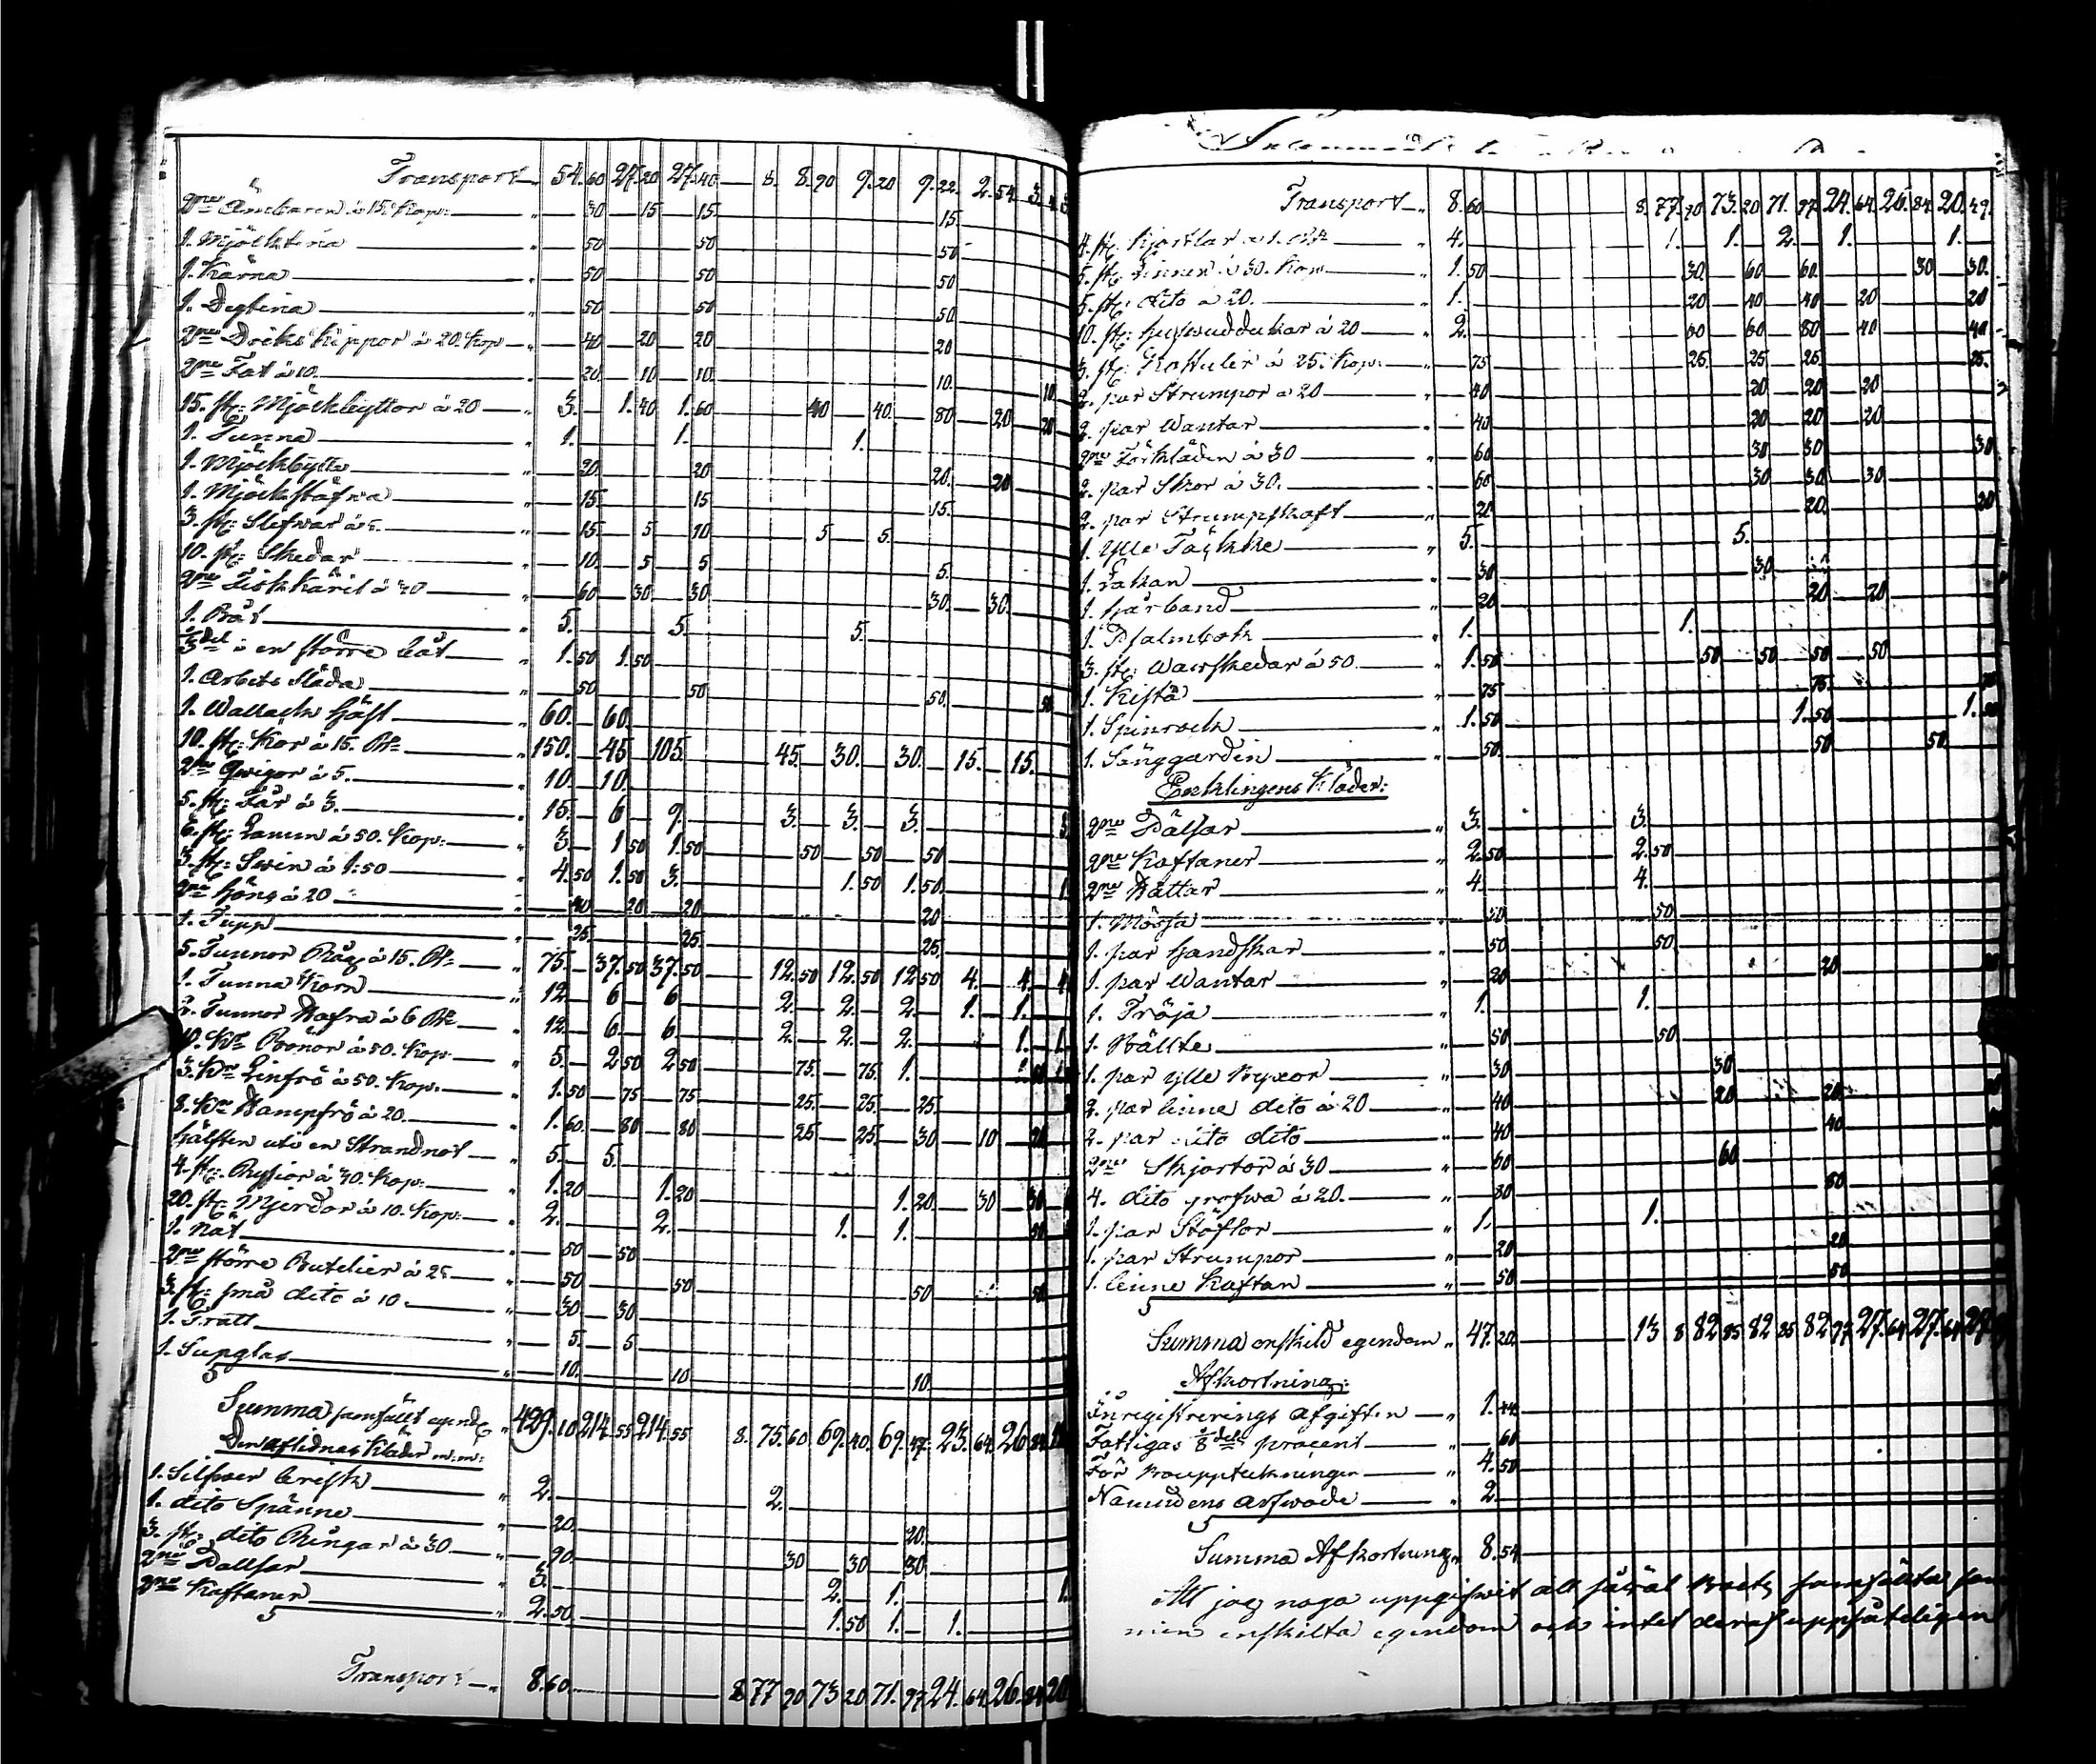 Transport 54.60 27.20 27.40 8. 8.90 9.20 9.22 2.54 3.
2ne Ämbaren à 15. Kop: 30 15 15 15.
1. Mjölktina 50 50 50
1. Kärna 50 50 50.
1. Degtina 50 50 50
2ne kippor à 20. Kop 40 20 20 20
2ne Fat à 10. 20 10 10. 10. 10.
15. st: Mjölkbyttor à 20 3. 1.40 1.60 40 40. 80 20 20
1. Tunna 1. 1. 1.
1. Mjölkbytta 20 20 20. 20
1. Mjölkstäfwa 15. 15 15.
3. st: Slefwar à 5. 15 5 10 5 5.
10. st: Skedar 10. 5 5 5.
2ne Fiskkäril à 30 60 30 30 30. 30.
1. Båt 5. 5. 5.
i en större båt 1.50 1.50
1. Arbets Släda 50 50 50.
1. Wallack häst 60. 60.
10. st: Kor à 15. R 150. 45 105. 45. 30. 30. 15. 15.
2ne Qwigor à 5. 10. 10.
5. st: Får à 3. 15. 6 9. 3. 3. 3.
6. st: Lamm à 50. Kop: 3. 1.50 1.50 50 50 50
3. st: Swin à 1:50 4.50 1.50 3. 1.50 1.50.
2ne höns à 20 40 20 20 20
1. Tupp 25. 25. 25.
5. Tunnor Råg à 15. R 75. 37.50 37.50 12.50 12.50 12.50 4. 4.
1. Tunna Korn 12. 6 6. 2. 2. 2. 1. 1.
2. Tunnor Hafra à 6 R 12. 6. 6. 2. 2. 2. 1. 1.
10. Bönor à 50. Kop: 5. 2.50 2.50 75. 75. 1.
3. Linfrö à 50. Kop. 1.50 75 75 25. 25. 25.
8. Hampfrö à 20. 1.60. 80 80 25 25. 30 10 20
hälften uti en Strandnot 5. 5.
4. st: Rysior à 30. Kop: 1.20 1.20 1.20. 30 30
20. st: Mjerdor à 10. Kop: 2. 2. 1. 1.
1. Nät 50 50
2ne större Butelier à 25 50 50 50
3. st: små dito à 10. 30 30
1. Tratt 5. 5
1. Supglas 10. 10 10
Summa samfällt egend 429.10 214.55 214.55 8. 75.60 69.40. 69.47. 23.64 26.84
Den aflidnas Kläder m:m:
1. Silfwer brisk 2. 2.
1. dito Spänne 20. 20.
3. st: dito Ringar à 30 90. 30 30 30
2ne Pallsar 3. 2. 1.
2ne Kaftaner 2.50. 1.50 1. 1.
Transport 8.60. 8 77 90 73 20 71. 97 24. 64. 26. 84 20
Transport 8.60 8. 77.90 73.20 71. 97 24.64 26.84. 20.49.
4. st: Kjortlar à 1. 4. 1. 1. 2. 1. 1.
5. st: Linnen à 30. Kop 1.50 30. 60 60. 30 30.
5. st: dito à 20. 1. 20 40 40 20 20
10. st: hufwuddukar à 20 2. 60 80 40 40
3. st: à 25. Kop: 75 25. 25 25. 25.
2. par Strumpor à 20 40 20 20 20
2. par Wantar 40 20 20 20
2ne Förkläden à 30 60 30 30 30
2. par Skor à 30. 60 30 30 30
2. par Strumpskaft 20 20. 20
1. Ylle Täckke 5. 5.
1. Lakan 30 30
1. hårband 20 20 20
1. Psalmbok 1. 1.
3. st: Wäfskedar à 50. 1.50 50 50 50 50
1. Kista 75 75
1. Spinrock 1.50 1.50 1.
1. Sänggardin 50. 50 50.
Enklingens Kläder:
2ne Pälsar 3. 3.
2ne Kaftaner 2.50 2.50
2ne Hattar 4. 4.
1. Mössa 50 50
1. par handskar 50 50
1. par Wantar 20 20
1. Tröja 1. 1.
1. Bällte 50 50
1. par Ylle Byxor 30 30
2. par linne dito à 20 40 20 20.
2. par dito dito 40 40
2ne Skjortor à 30 60 60
4. dito grofwa à 20. 80
1. par Stöflor 1. 1.
1. par Strumpor 20 20
1. linne Kaftan 50 50
Summa enskild egendom 47.20. 13 8 82 95 82 95 82 97 27.64 27.64 27
Afkortning:
Inregistrerings afgiften 1.44
Fattigas 1/8 dels procent 60
För Bouppteckningen 4.50
Nämndens arfwode 2.
Summa Afkortning 8.54
Att jag noga uppgifwit allt såwäl Boets samfällta som
min enskilta egendom och intet deraf uppsåteligen